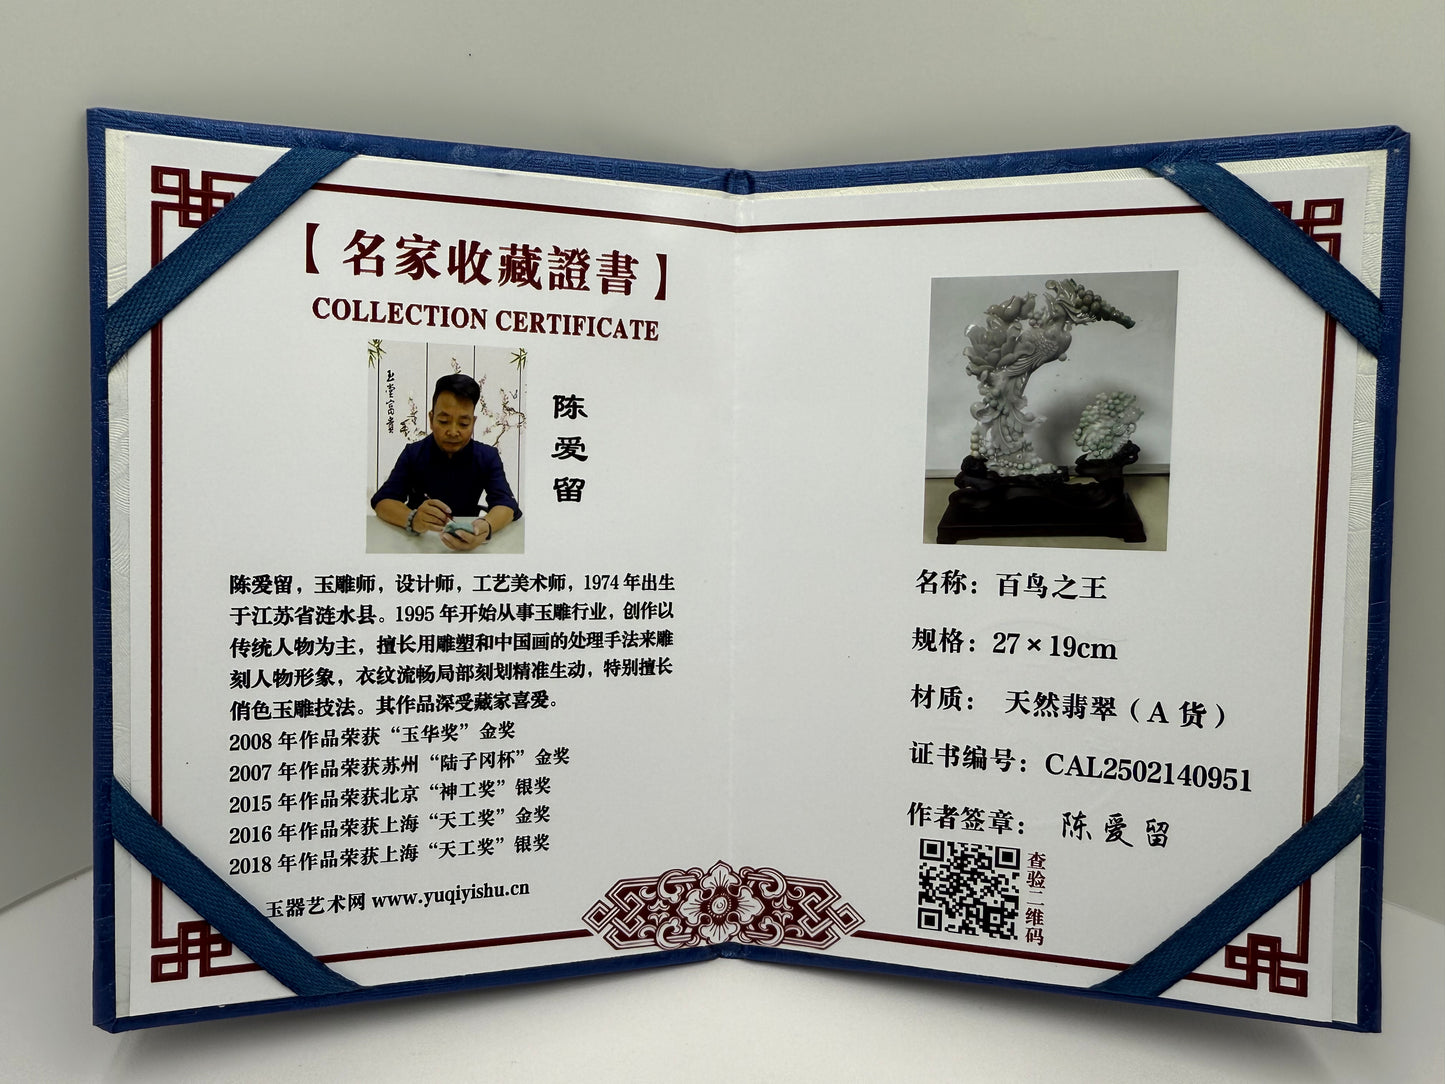 【名家收藏證書】
COLLECTION CERTIFICATE
玉堂富貴
陈爱留
陈爱留，玉雕师，设计师，工艺美术师，1974 年出生
于江苏省涟水县。1995 年开始从事玉雕行业，创作以
传统人物为主，擅长用雕塑和中国画的处理手法来雕
刻人物形象，衣纹流畅局部刻划精准生动，特别擅长
俏色玉雕技法。其作品深受藏家喜爱。
2008 年作品荣获“玉华奖”金奖
2007 年作品荣获苏州“陆子冈杯”金奖
2015 年作品荣获北京“神工奖”银奖
2016 年作品荣获上海“天工奖”金奖
2018 年作品荣获上海“天工奖”银奖
玉器艺术网 www.yuqiyishu.cn
名称：百鸟之王
规格：27×19cm
材质： 天然翡翠（A 货）
证书编号：CAL2502140951
作者签章： 陈爱留
查验二维码